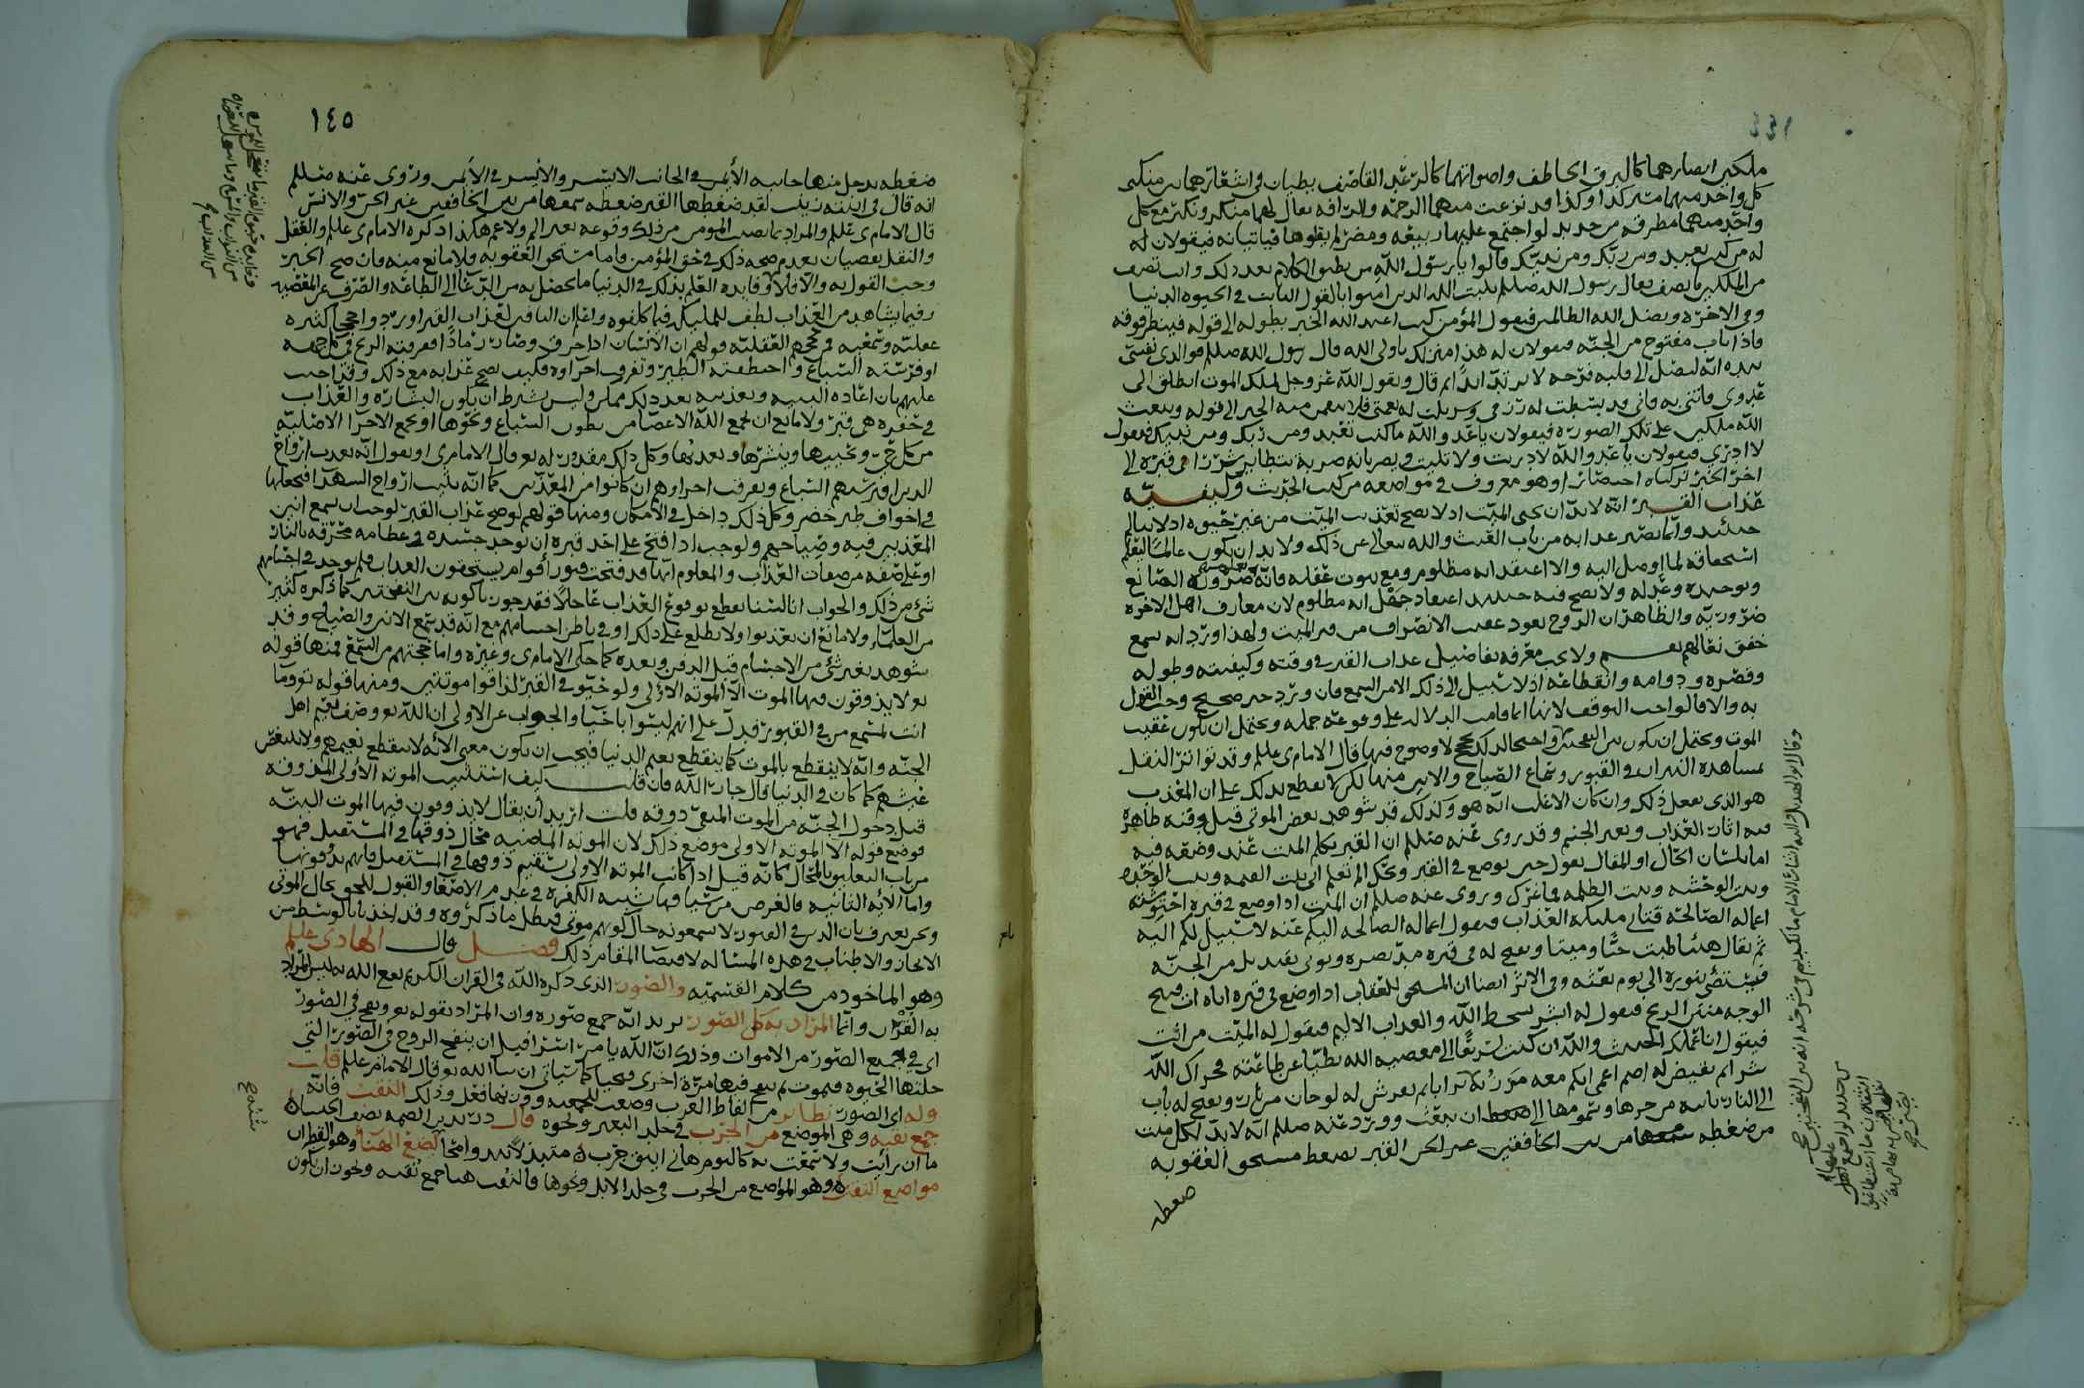 ١٤٤
ملكين ابصارهما كالبرق الخاطف واصواتهما كالرعد القاصف يطيان في اشعارهما بين منكبي
كل واحد منهما مسيرة كذا وكذا قد نزعت منهما الرحمة والرأفة يقال لهما منكر ونكير مع كل
واحد منهما مطرقة من حديد لو اجتمع عليها ربيعة ومضر لم يقلوها فيأتيانه فيقولان له
من كنت تعبد ومن ربك ومن نبيك قالوا يا رسول الله من يطيق الكلام بعد ذلك وانت تصف
من الملكين ما تصف فقال رسول الله صللم يثبت الله الذين امنوا بالقول الثابت في الحيوة الدنيا
وفي الاخرة ويضل الله الظالمين فيقول المؤمن كنت اعبد الله الخبر بطوله الى قوله فينظر فوقه
فاذا باب مفتوح من الجنة فيقولان له هذا منزلك يا ولي الله قال رسول الله صللم فوالذي نفسي
بيده انه ليصل الى قلبه فرحة لا ترتد ابدا ثم قال ويقول الله عز وجل لملك الموت انطلق الى
عدوي فأتني به فاني قد بسطت له رزقي وسربلت له نعمتي الخبر الى قوله ويبعث
الله ملكين على تلك الصورة فيقولان يا عدو الله ما كنت تعبد ومن ربك ومن نبيك فيقول
لا ادري فيقولان يا عدو الله لا دريت ولا تليت ويضربانه ضربة يتطاير شررا في قبره الى
اخر الخبر تركناه اختصارا وهو معروف في مواضعه من كتب الحديث وكيفية
عذاب القبر انه لا بد ان يحيي الميت اذ لا يصح تعذيب الميت من غير حيوة اذ لا ينال
حينئذ وانما يصير عذابه من باب العبث والله يتعالى عن ذلك ولا بد ان يكون عالما
استحقاقه لما اوصل اليه والا اعتقد انه مظلوم ومع ثبوت عقله فانه ضرورة الصانع
وتوحيده وعدله ولا يصح منه حينئذ اعتقاد جهل انه مظلوم لان معارف اهل الاخرة
ضرورية والظاهر ان الروح يعود عقيب الانصراف من قبر الميت ولهذا ورد انه يسمع
خفق نعالهم نعم ولا يجب معرفة تفاصيل عذاب القبر في وقته وكيفيته وطوله
وقصره ودوامه وانقطاعه اذ لا سبيل الى ذلك الا من السمع فان ورد خبر صحيح وجب القول
به والا فالواجب التوقف لانها انما قامت الدلالة على وقوعه جملة ويحتمل ان يكون عقيب
الموت ويحتمل ان يكون بين النفختين لا وضوح فيها قال الامام ى عللم وقد تواتر النقل
بمشاهدة النيران في القبور وسماع الصياح والانين منها لكن لا نقطع بذلك على ان المعذب
هو الذي يفعل ذلك وان كان الاغلب انه هو وكذلك قد شوهد بعض الموتى قبل دفنه ظاهرة
فيه اثار العذاب وتغير الجسم وقد روي عنه صللم ان القبر يكلم الميت عند وضعه فيه
اما بلسان الحال او المقال يقول حين يوضع في القبر ويحك الم تعلم اني بيت وبيت
وبيت الوحشة وبيت الظلمة فما غرك وروي عنه صللم ان الميت اذا وضع في قبره احتوشته
اعماله الصالحة فتأتي ملئكة العذاب فيقول اعماله الصالحة اليكم عنه لا سبيل لكم اليه
ثم يقال هنيئا طبت حيا وميتا ويفسح له في قبره مد بصره ويؤتى بقنديل من الجنة
فيستضئ بنوره الى يوم بعثه وفي الاثر ايضا ان المستحق للعقاب اذا وضع في قبره اتاه ات قبيح
الوجه منتن الريح فيقول له ابشر بسخط الله والعذاب الاليم فيقول له الميت من انت
فيقول انا عملك الخبيث والله ان كنت سريعا الى معصية الله بطيئا عن طاعته فجزاك الله
شرا ثم يقيض له اصم اعمى ابكم معه مرزبة ثم يفرش له لوحان من نار ويفتح له باب
الى النار يأتيه من حرها وسمومها الى ان يبعث وورد عنه صللم انه لا بد لكل ميت
من ضغطة بين الخافقين غير الجن القبر يضغط مستحق العقوبة
ضغطة
١٤٥
ضغطة يدخل منها جانبه الأيمن في الجانب الايسر والايسر في الأيمن وروي عنه صللم
انه قال في ابنته زينب لقد ضغطها القبر ضغطة سمعها من بين الخافقين غير الجن والانس
قال الامام ى عللم والمراد بما يصيب المؤمن من ذلك وقوعه بغير الم ولا غم هكذا ذكره الامام ى عللم والعقل
والنقل يقضيان بعدم صحة ذلك في حق المؤمن واما مستحق العقوبة فلا مانع منه فان صح الخبر
وجب القول به والا فلا وفايدة العلم بذلك في الدنيا ما يحصل به من الدعاء الى الطاعة والصرف عن المعصية
وفيما يشاهد من العذاب لطف للمليكة فيما كلفوه واعلم ان النافين لعذاب القبر اوردوا حججا كثيرة
عقلية وسمعية فمن حججهم العقلية قولهم ان الانسان اذا احرق وصار رمادا فرقته الريح في كل جهة
او فرسته السباع واختطفته الطير وتفرق اجزاوه فكيف يصح عذابه مع ذلك وقد اجيب
عليهم بان اعادة البنية وتعذيبه بعد ذلك ممكن وليس شرط ان يكون البشارة والعذاب
في حفرة هي قبر ولا مانع ان يجمع الله الاعضا من بطون السباع ونحوها او يجمع الاجزا الاصلية
من كل حي ويحييها ويبشرها ويعذبها وكل ذلك مقدور له تع وقال الامام ى او يقول انه يعذب ارواح
الذين افترسهم السباع وتفرقت اجزاوهم ان كانوا من المعذبين كما انه يثيب ارواح الشهدا فيجعلها
في اجواف طير خضر وكل ذلك داخل في الامكان ومنها قولهم لو صح عذاب القبر لوجب ان يسمع انين
المعذبين فيه وصياحهم ولوجب اذا فتح على احد قبره ان توجد جسده في عظامه محرقة بالنار
او على صفة من صفات العذاب والمعلوم انها قد فتحت قبور اقوام يستحقون العذاب فلم يوجد في اجسامهم
شئ من ذلك والجواب انا لسنا نقطع بوقوع العذاب عاجلا فقد جوزنا كونه بين النفختين كما ذكره كثير
من العلماء ولا مانع ان يعذبوا ولا نطلع على ذلك او في باطن اجسامهم مع انه قد سمع الانين والصياح وقد
شوهد تغير شئ من الاجسام قبل الدفن وبعده كما حكى الامام ى وغيره واما حجتهم من السمع فمنها قوله
تع لا يذوقون فيها الموت الا الموتة الاولى ولو حيوا في القبر لذاقوا موتتين ومنها قوله تع وما
انت بمسمع من في القبور فدل على انهم ليسوا باحيا والجواب عن الاولى ان الله تع وصف نعيم اهل
الجنة وانه لا ينقطع بالموت كما ينقطع نعيم الدنيا فيجب ان يكون معنى الاية لا ينقطع نعيمهم ولا يتنغص
عيشهم كما كان في الدنيا قال جار الله فان قلت كيف استثنيت الموتة الأولى المذوقة
قبل دخول الجنة من الموت المنفي ذوقه قلت اريد ان يقال لا يذوقون فيها الموت البتة
فوضع قوله الا الموتة الاولى موضع ذلك لان الموتة الماضية محال ذوقها في المستقبل فهو
من باب التعليق بالمحال كانه قيل اذا كانت الموتة الاولى يستقيم ذوقها في المستقبل فانهم يذوقونها
واما الاية الثانية فالغرض من سياقها تشبيه الكفرة في عدم الاصغا والقبول للحق بحال الموتى
ونحن نعترف بان الذين في القبور لا يسمعون حال كونهم موتى فبطل ما ذكروه وقد اخذنا بالوسط من
الايجاز والاطناب في هذه المسألة لاقتضا المقام ذلك فصل قال الهادي عللم
وهو الماخوذ من كلام القسمية والصور الذي ذكره الله في القران الكريم
به القرن وانما المراد به كل الصور يريد انه جمع صورة وان المراد بقوله تع ونفخ في الصور
اي في جميع الصور من الاموات وذلك ان الله يامر اسرافيل ان ينفخ الروح في الصور التي
حلتها الحيوة فيموت ثم ينفخ فيها مرة اخرى فيحيا كما سيأتي ان شا الله تع وقال الامام عللم قلت
وله اي الصور نظاير من الفاظ العرب وضعت للجمعية وزنها فعل وذلك النقب فانه
جمع نقبة وهي الموضع من الجرب في جلد البعير ونحوه قال دريد بن الصمة يصف الخنساء
ما ان رأيت ولا سمعت به كاليوم هاني اينق جرب متبذلا تبدو محاسنه يضع الهنا وهو القطران
مواضع النقب وهو المواضع من الجرب في جلد الابل ونحوها فالنقب هنا جمع نقبة ويجوز ان يكون